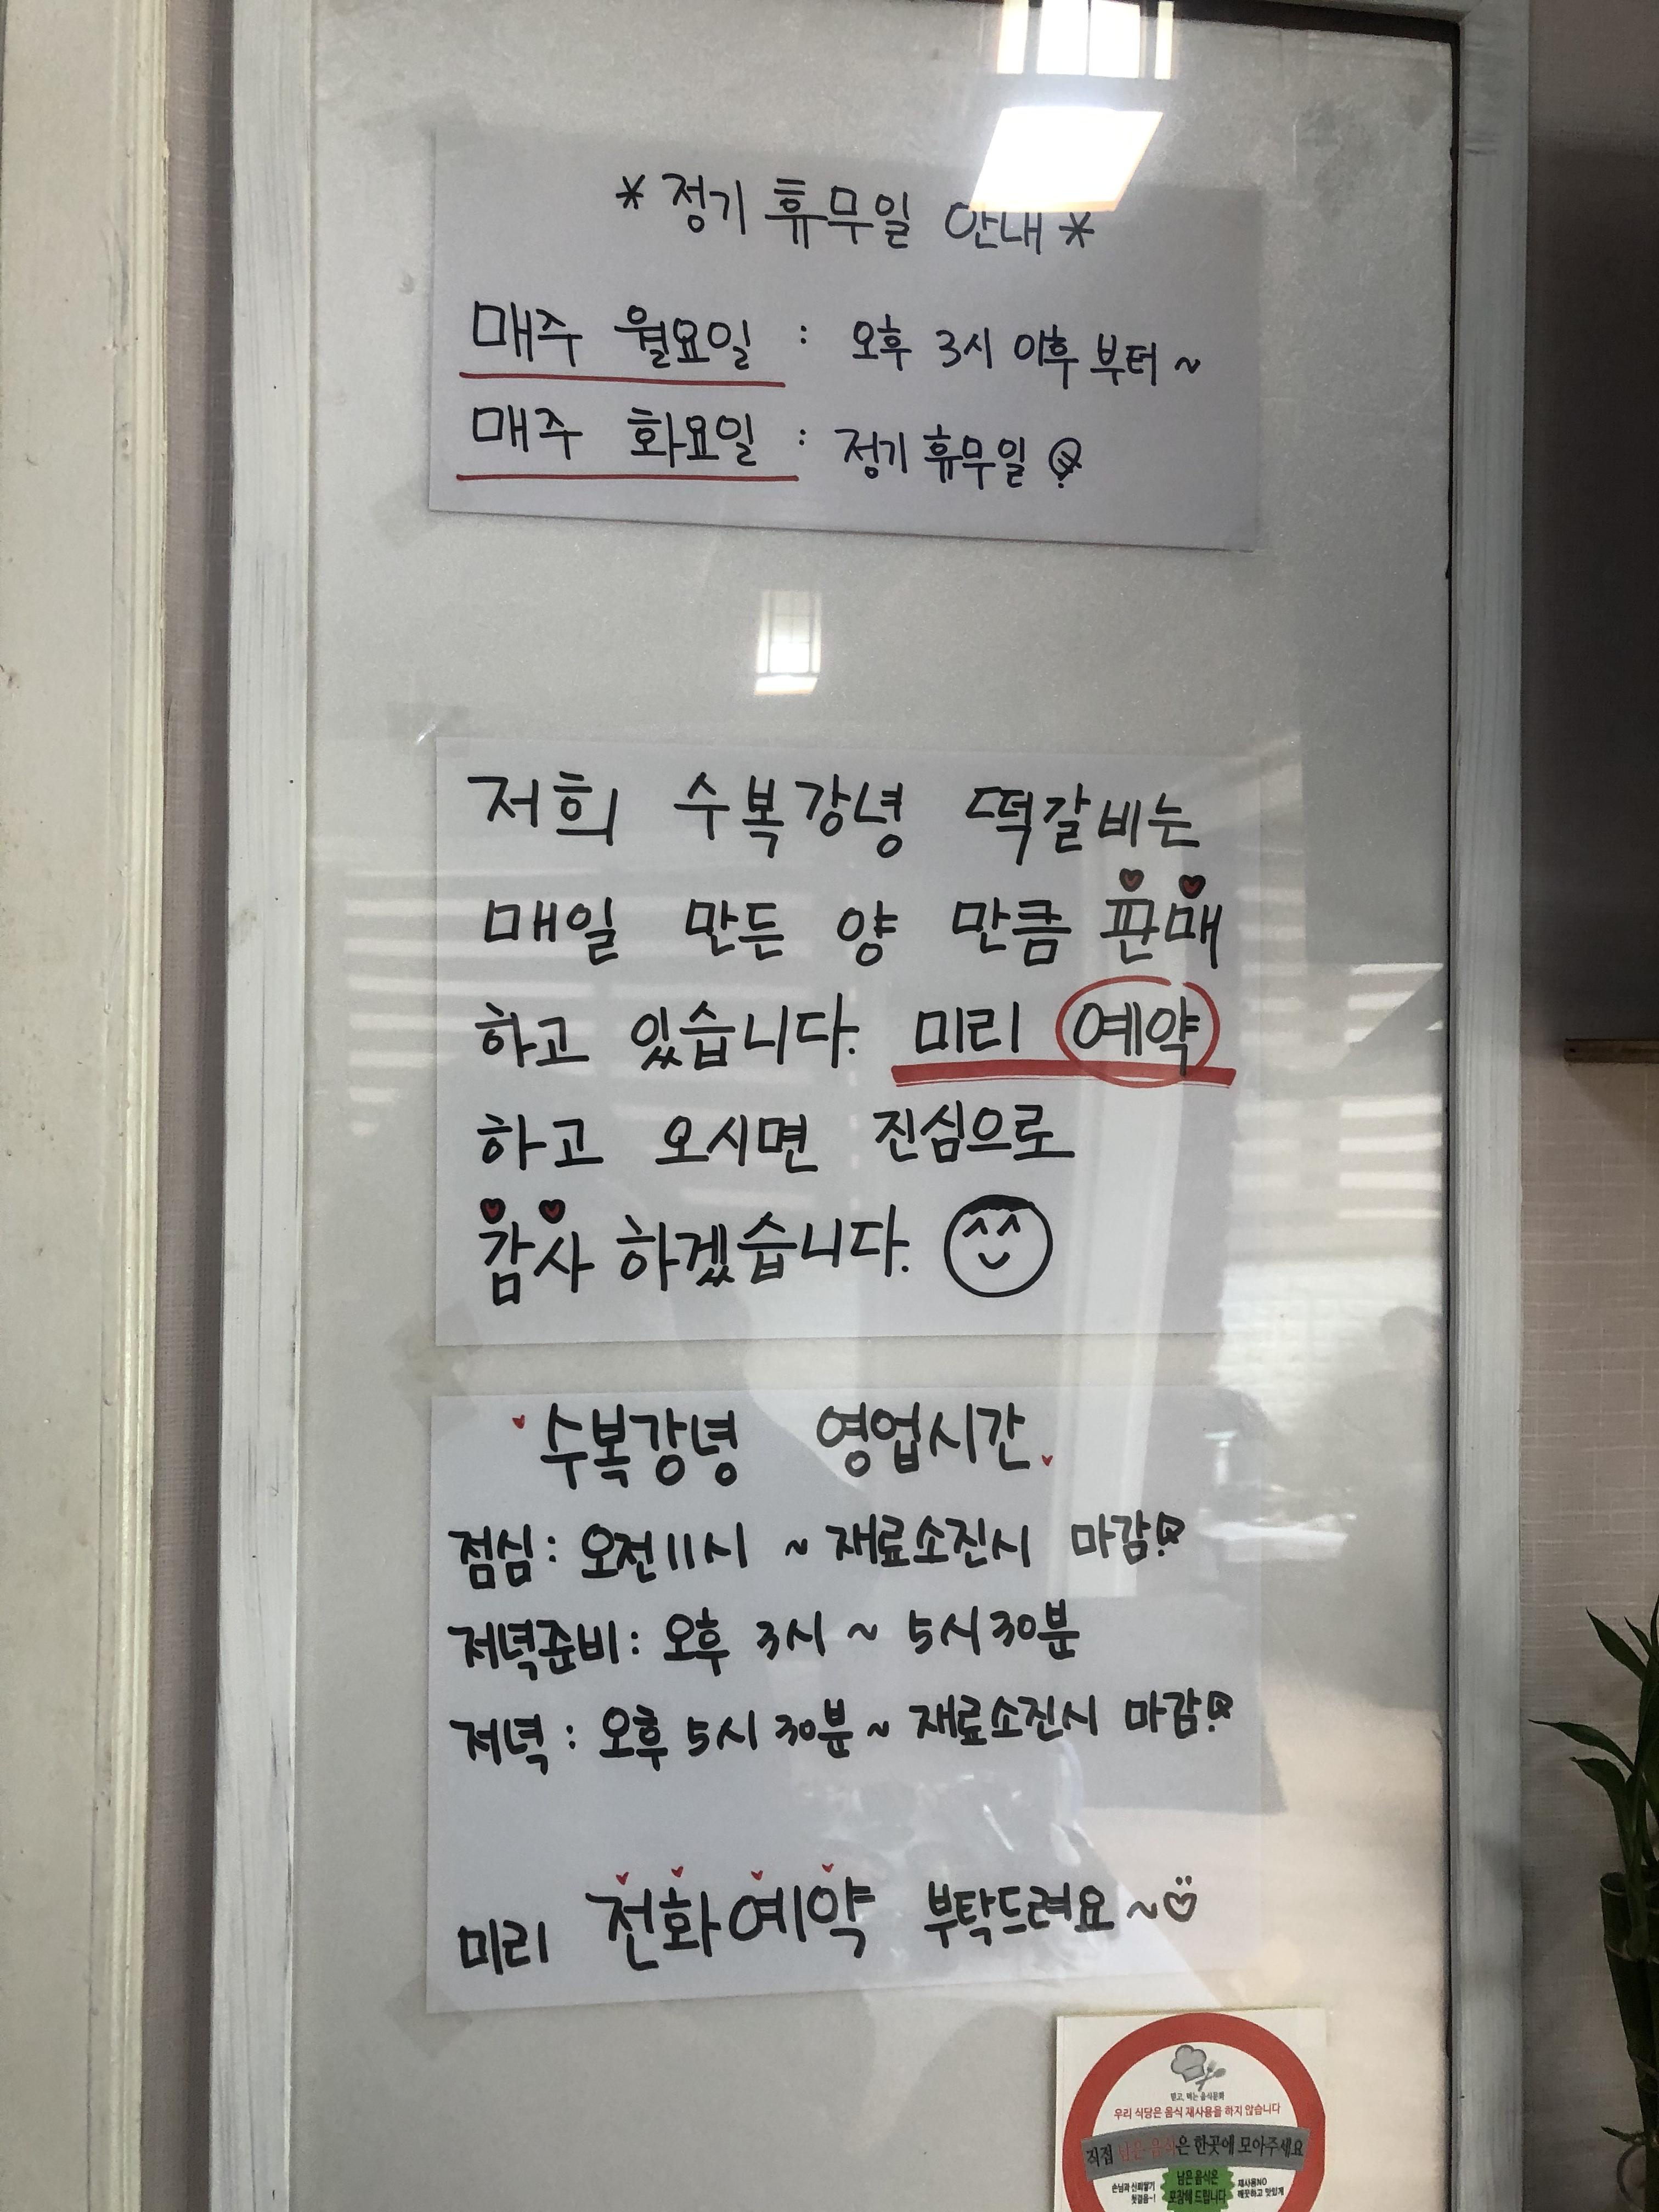 * 정기 휴무일 안내 *
매주 월요일 : 오후 3시 이후 부터 ~
매주 화요일 : 정기 휴무일
저희 수복강녕 떡갈비는
매일 만든 양 만큼 판매
하고 있습니다. 미리 예약
하고 오시면 진심으로
감사 하겠습니다.
수복강녕 영업시간
점심: 오전 11시 ~ 재료소진시 마감!
저녁준비: 오후 3시 ~ 5시 30분
저녁 : 오후 5시 30분 ~ 재료소진시 마감!
미리 전화예약 부탁드려요~
믿고, 먹는 음식문화
우리 식당은 음식 재사용을 하지 않습니다
직접 남은 음식은 한곳에 모아주세요
손님과 신뢰쌓기
첫걸음~!
남은 음식은
포장해 드립니다
재사용NO
깨끗하고 맛있게